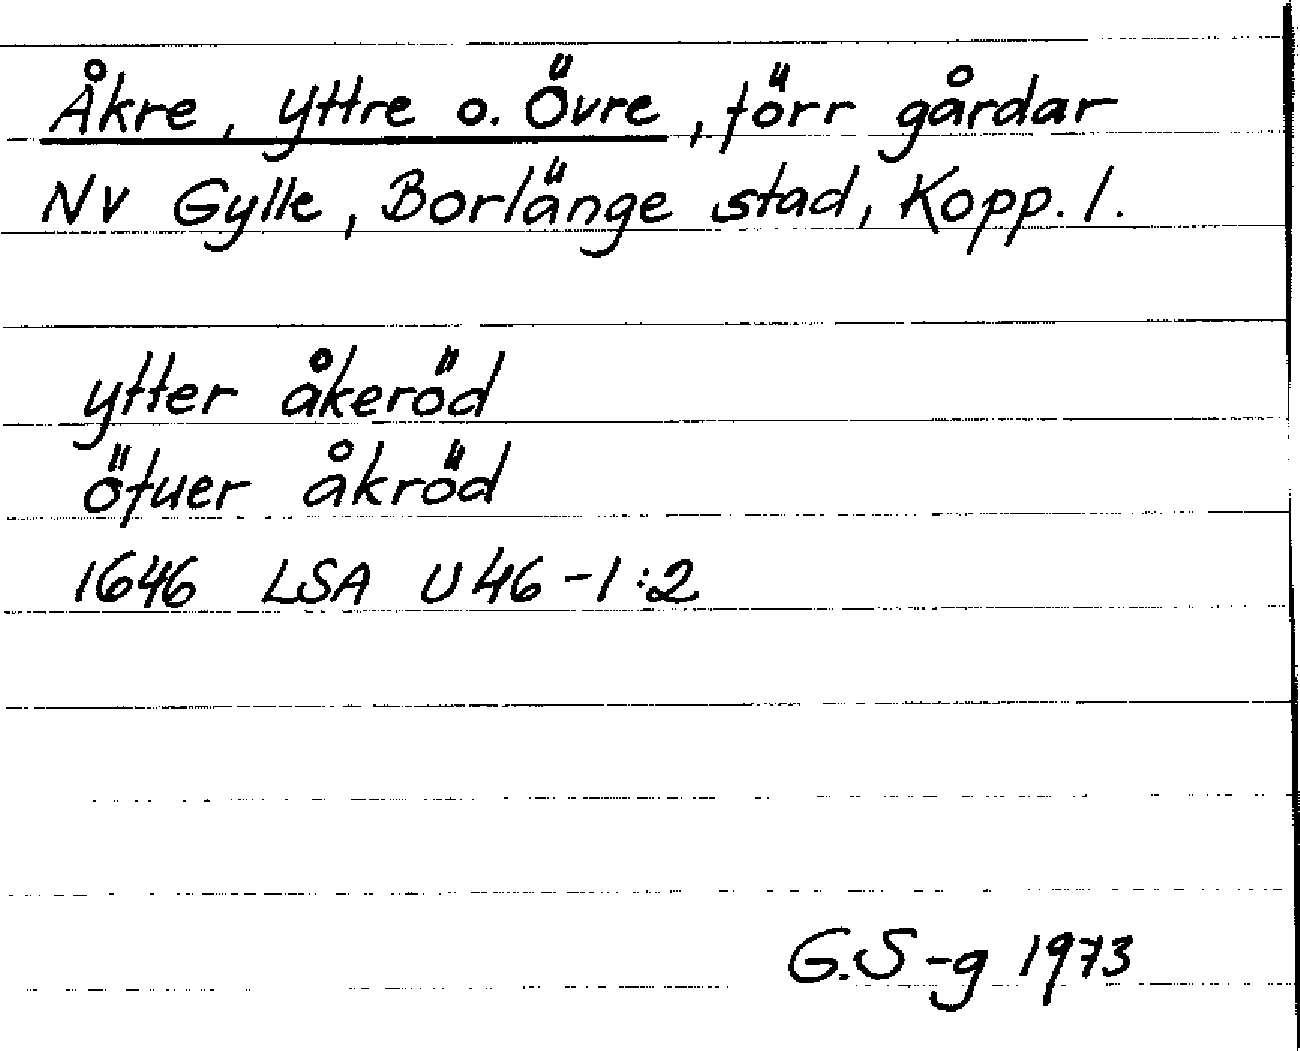 Åkre, Yttre o. Övre, förr gårdar
NV Gylle, Borlänge stad, Kopp. l.
ytter åkeröd
öfuer åkröd
1646 LSA U46-1:2
G.S-g 1973